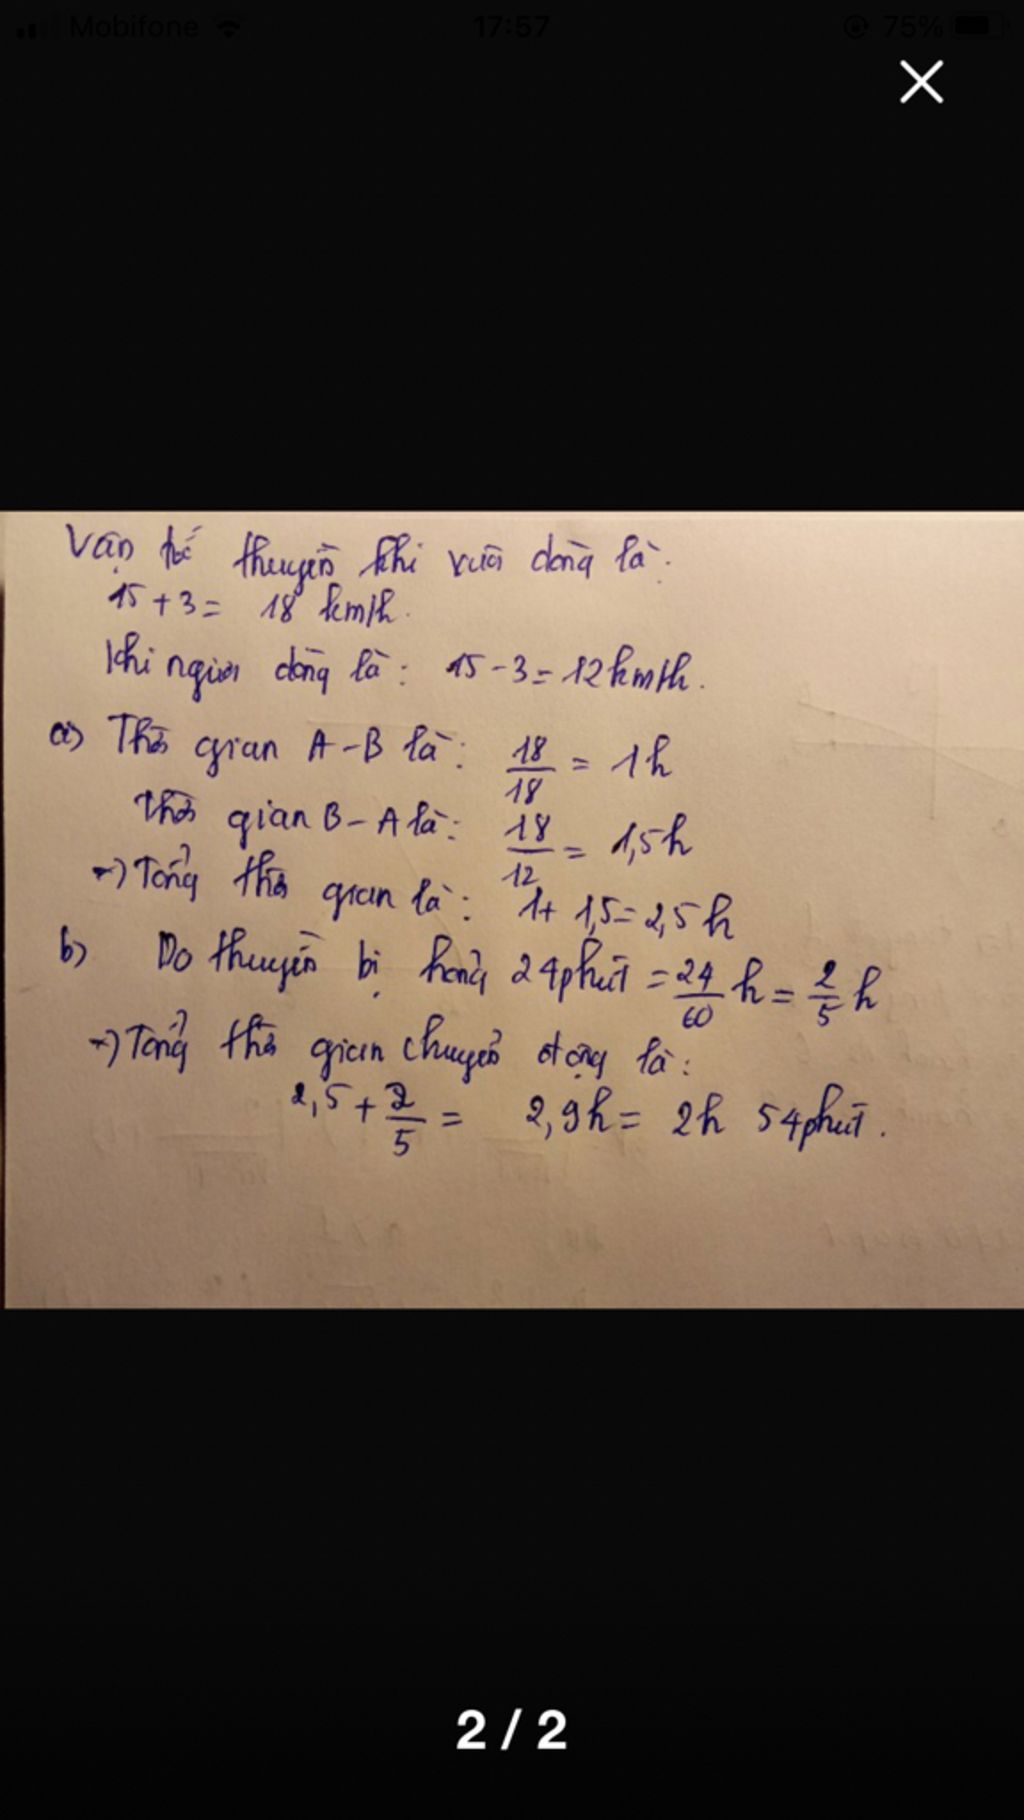 Mobifone 17:57 75%
Vận tốc thuyền khi xuôi dòng là:
15 + 3 = 18 km/h.
Khi ngược dòng là: 15 - 3 = 12 km/h.
a) Thời gian A - B là: 18/18 = 1h
Thời gian B - A là: 18/12 = 1,5h
→) Tổng thời gian là: 1 + 1,5 = 2,5h
b) Do thuyền bị hỏng 24 phút = 24/60 h = 2/5 h
→) Tổng thời gian chuyển động là:
2,5 + 2/5 = 2,9h = 2h 54 phút.
2 / 2